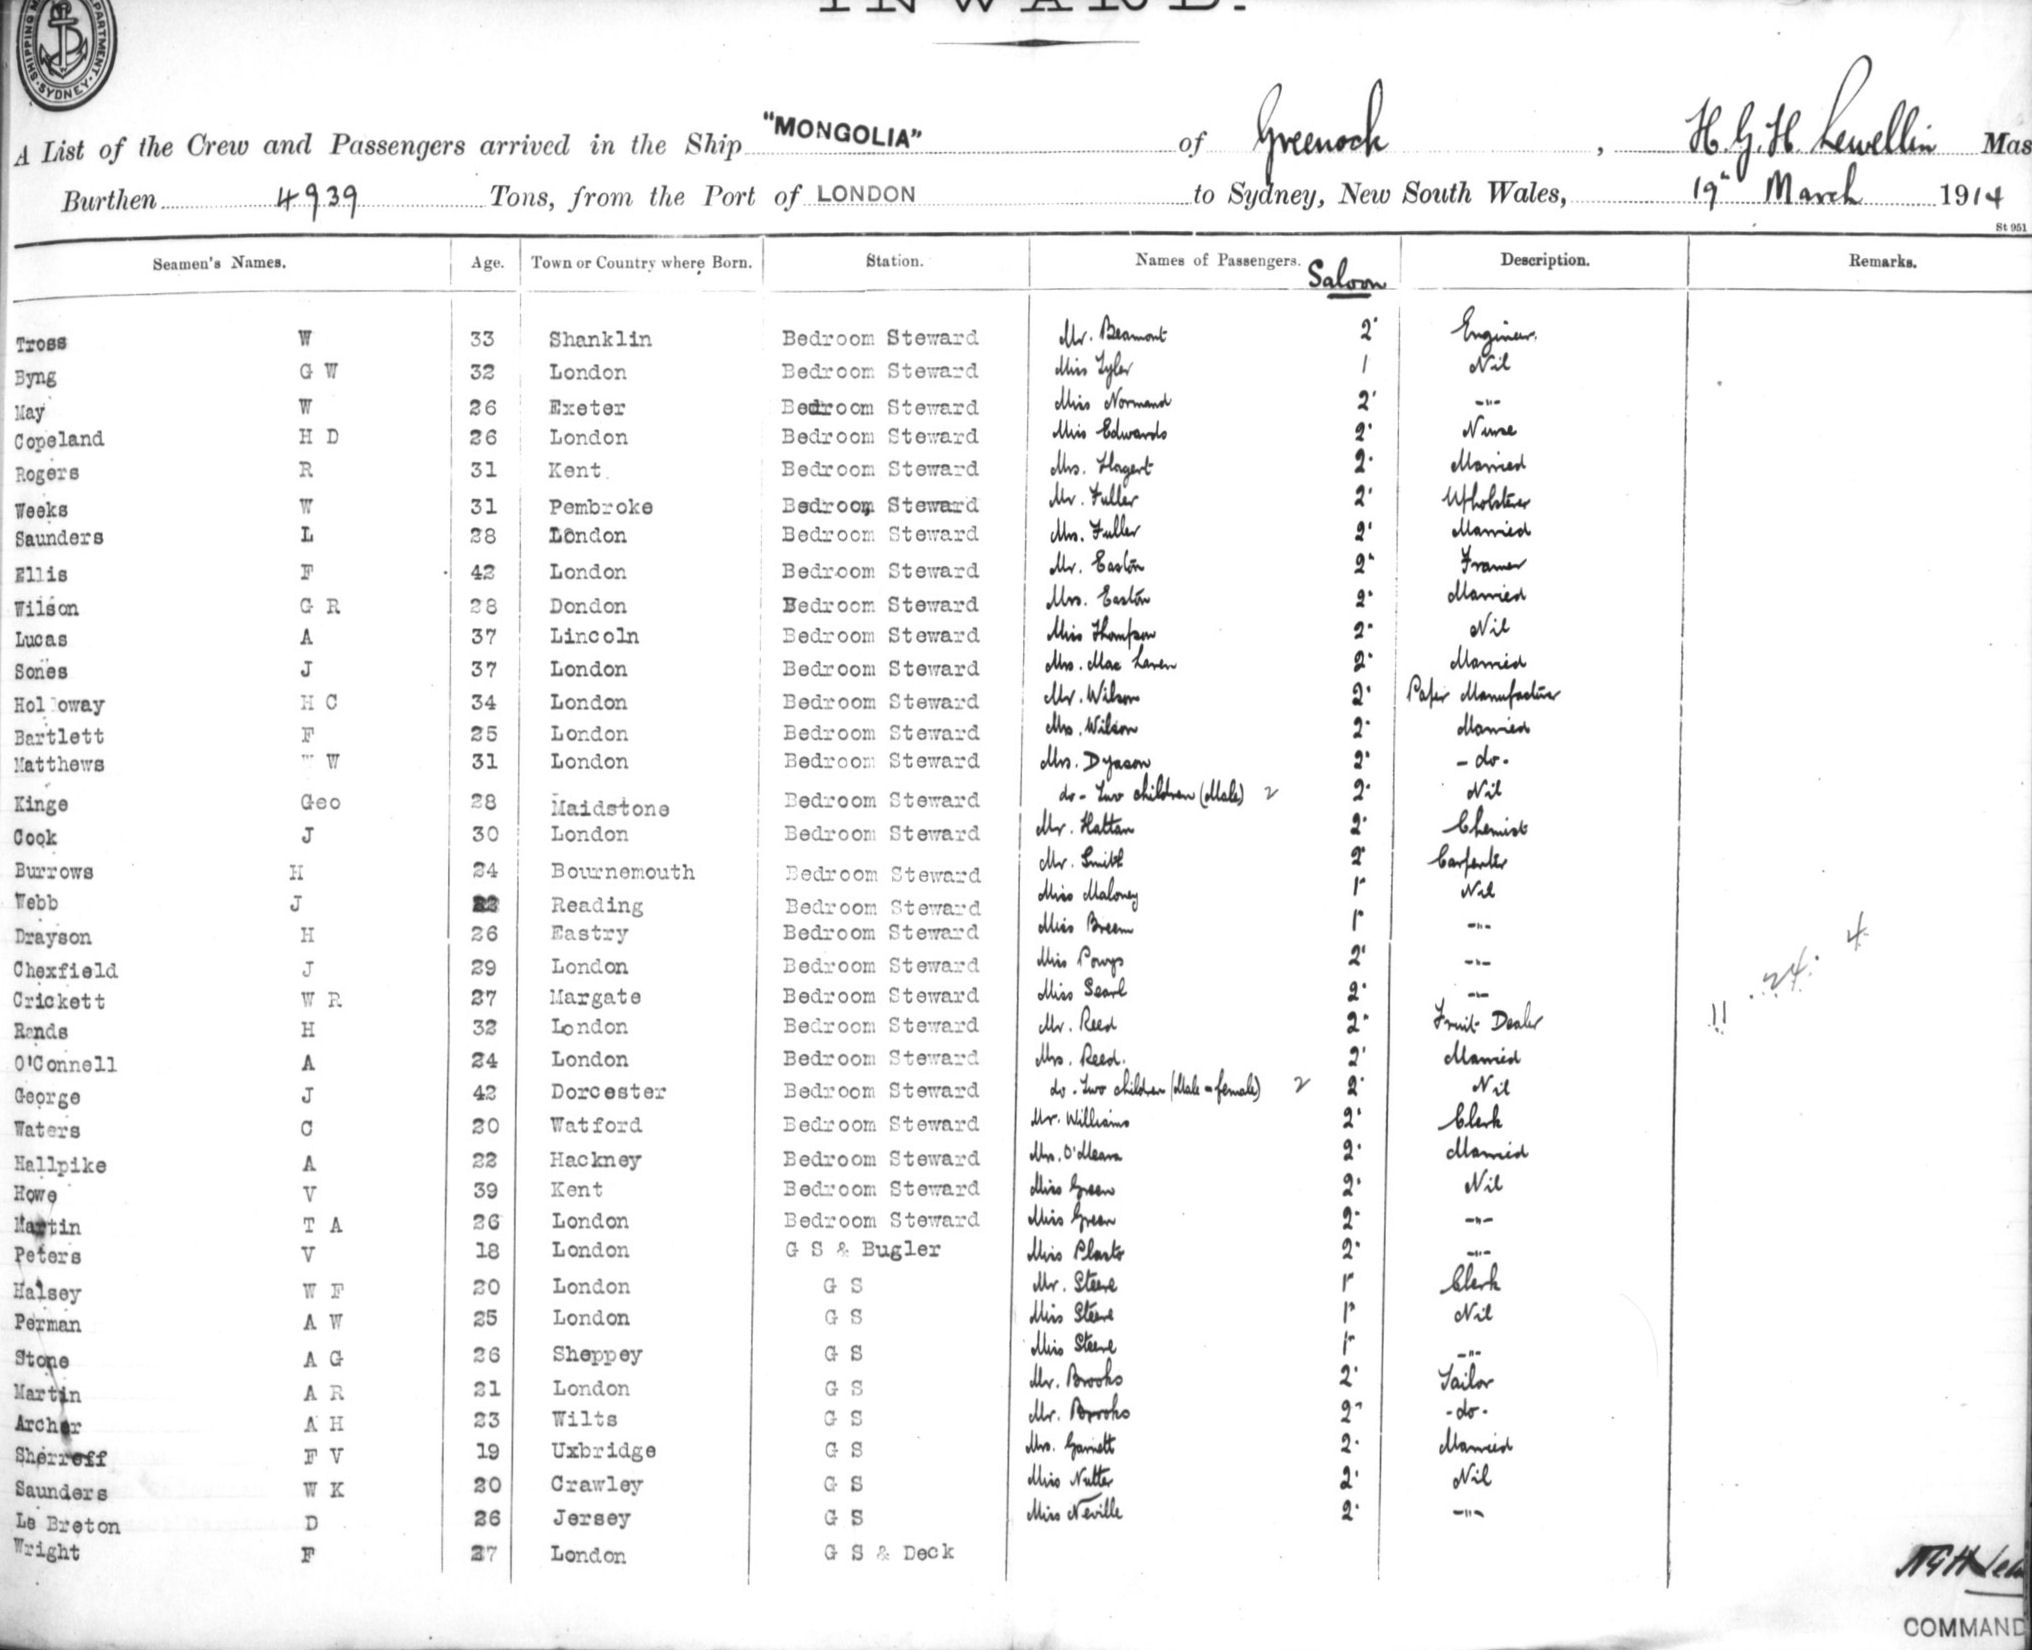 INWARD.
SHIPPING DEPARTMENT. SYDNEY
A List of the Crew and Passengers arrived in the Ship "MONGOLIA" of Greenock, H. G. H. Lewellin Mas
Burthen 4939 Tons, from the Port of LONDON to Sydney, New South Wales, 19th March 1914
St 951
Seamen's Names. Age. Town or Country where Born. Station. Names of Passengers. Saloon Description. Remarks.
Tross W 33 Shanklin Bedroom Steward Mr. Beamont 2 Engineer.
Byng G W 32 London Bedroom Steward Miss Tyler 1 Nil
May W 26 Exeter Bedroom Steward Miss Normand 2 -"-
Copeland H D 26 London Bedroom Steward Miss Edwards 2 Nurse
Rogers R 31 Kent Bedroom Steward Mrs. Hagert 2 Married
Weeks W 31 Pembroke Bedroom Steward Mr. Fuller 2 Upholsterer
Saunders L 28 London Bedroom Steward Mrs. Fuller 2 Married
Ellis F 42 London Bedroom Steward Mr. Easton 2 Framer
Wilson G R 28 Dondon Bedroom Steward Mrs. Easton 2 Married
Lucas A 37 Lincoln Bedroom Steward Miss Thompson 2 Nil
Sones J 37 London Bedroom Steward Mrs. Mac Laren 2 Married
Holloway H C 34 London Bedroom Steward Mr. Wilson 2 Paper Manufacturer
Bartlett F 25 London Bedroom Steward Mrs. Wilson 2 Married
Matthews W 31 London Bedroom Steward Mrs. Dyason 2 - do -
Kinge Geo 28 Maidstone Bedroom Steward do - Two children (Male) 2 2 Nil
Cook J 30 London Bedroom Steward Mr. Hattan 2 Chemist
Burrows H 24 Bournemouth Bedroom Steward Mr. Smith 2 Carpenter
Webb J Reading Bedroom Steward Miss Maloney 1 Nil
Drayson H 26 Eastry Bedroom Steward Miss Breem 1 -"-
Chexfield J 29 London Bedroom Steward Miss Powys 2 -"-
Crickett W R 27 Margate Bedroom Steward Miss Searl 2 -"-
Rands H 32 London Bedroom Steward Mr. Reed 2 Fruit Dealer 11 24 4
O'Connell A 24 London Bedroom Steward Mrs. Reed. 2 Married
George J 42 Dorcester Bedroom Steward do - Two children (Male - female) 2 2 Nil
Waters C 20 Watford Bedroom Steward Mr. Williams 2 Clerk
Hallpike A 22 Hackney Bedroom Steward Mrs. O'Meara 2 Married
Howe V 39 Kent Bedroom Steward Miss Green 2 Nil
Martin T A 26 London Bedroom Steward Miss Green 2 -"-
Peters V 18 London G S & Bugler Miss Plasto 2 -"-
Halsey W F 20 London G S Mr. Steere 1 Clerk
Perman A W 25 London G S Miss Steere 1 Nil
Stone A G 26 Sheppey G S Miss Steere 1 -"-
Martin A R 21 London G S Mr. Brooks 2 Tailor
Archer A H 23 Wilts G S Mr. Brooks 2 - do -
Sherreff F V 19 Uxbridge G S Mrs. Garnett 2 Married
Saunders W K 20 Crawley G S Miss Nutter 2 Nil
Le Breton D 26 Jersey G S Miss Neville 2 -"-
Wright F 27 London G S & Deck
COMMAND